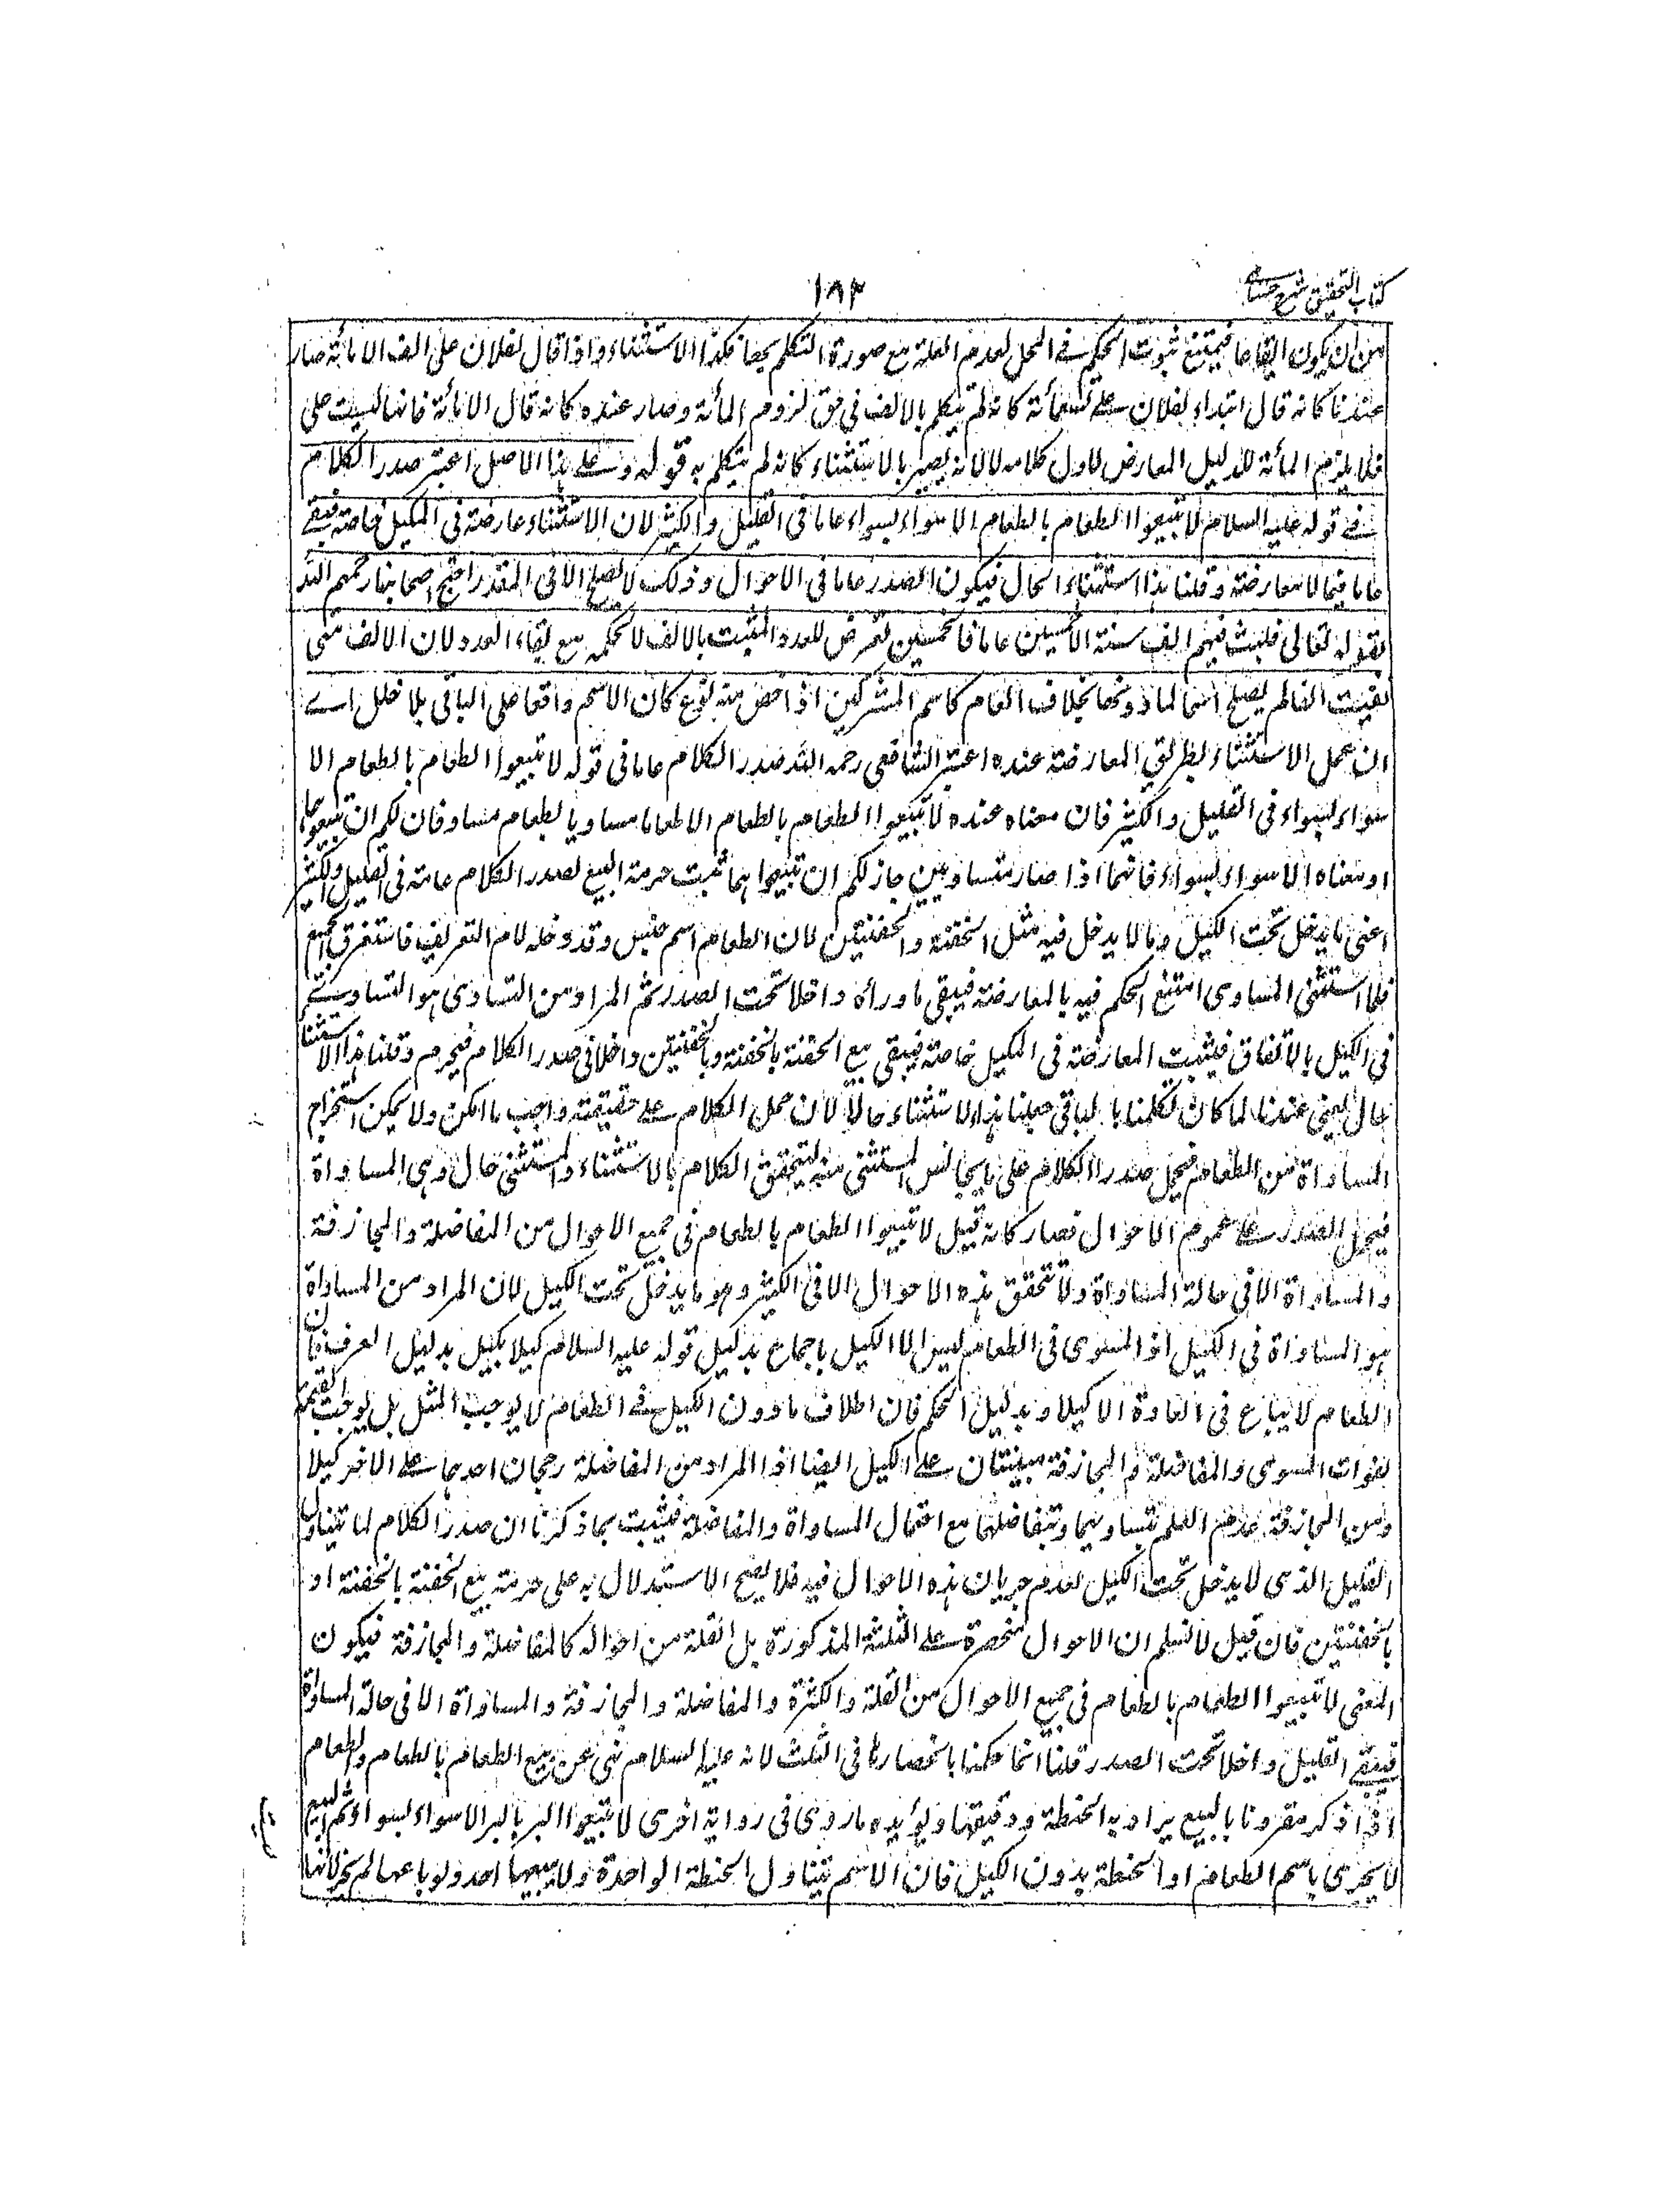 كتاب التحقيق شرح حسامى
١٨٣
من ان يكون ايقاعا فيمتنع ثبوت الحكم فى المحل لعدم العلة مع صورة التكلم بها فكذا الاستثناء واذا قال لفلان على الف الا مائة صار
عندنا كانه قال ابتداء لفلان على تسعمائة كانه لم يتكلم بالالف فى حق لزوم المائة وصار عنده كانه قال الا مائة فانها ليست على
فلا يلزم المائة للدليل المعارض لاول كلامه لا لانه يصير بالاستثناء كانه لم يتكلم به قوله وعلى هذا الاصل اعتبر صدر الكلام
فى قوله عليه السلام لا تبيعوا الطعام بالطعام الا سواء بسواء عاما فى القليل والكثير لان الاستثناء عارضه فى المكيل خاصة فبقى
عاما فيما لا معارضة وقلنا هذا استثناء الحال فيكون الصدر عاما فى الاحوال وذلك لا يصلح الا فى المقدر احتج اصحابنا رحمهم الله
بقوله تعالى فلبث فيهم الف سنة الا خمسين عاما فالخمسين تعرض للعدد المثبت بالالف لا لحكمه مع بقاء العدد لان الالف متى
بقيت الفا لم يصلح اسما لما دونها بخلاف العام كاسم المشركين اذا خص منه نوع كان الاسم واقعا على الباقى بلا خلل اى
ان عمل الاستثناء بطريق المعارضة عنده اعتبر الشافعى رحمه الله صدر الكلام عاما فى قوله لا تبيعوا الطعام بالطعام الا
سواء بسواء فى القليل والكثير فان معناه عنده لا تبيعوا الطعام بالطعام الا طعاما مساويا بطعام مساو فان لكم ان تبيعوهما
او معناه الا سواء بسواء فانهما اذا صارا متساويين جاز لكم ان تبيعوا هما ثبت حرمة البيع لصدر الكلام عامة فى القليل والكثير
اعنى ما يدخل تحت الكيل وما لا يدخل فيه مثل الحفنة والحفنتين لان الطعام اسم جنس وقد دخله لام التعريف فاستغرق الجميع
فلما استثنى المساوى امتنع الحكم فيه بالمعارضة فيبقى ما وراءه داخلا تحت الصدر ثم المراد من التساوى هو التساوى
فى الكيل بالاتفاق فيثبت المعارضة فى المكيل خاصة فيبقى بيع الحفنة بالحفنة وبالحفنتين داخلا فى صدر الكلام فيحرم وقلنا هذا الاستثناء
حال يعنى عندنا لما كان تكلمنا بالباقى جعلنا هذا الاستثناء حالا لان حمل الكلام على حقيقته واجب ما امكن ولا يمكن استخراج
المساواة من الطعام فيحمل صدر الكلام على ما يجانس المستثنى منه ليتحقق الكلام بالاستثناء والمستثنى حال وهى المساواة
فيحمل الصدر على عموم الاحوال فصار كانه قيل لا تبيعوا الطعام بالطعام فى جميع الاحوال من المفاضلة والمجازفة
والمساواة الا فى حالة المساواة ولا تتحقق هذه الاحوال الا فى الكثير وهو ما يدخل تحت الكيل لان المراد من المساواة
هو المساواة فى الكيل اذ المسوى فى الطعام ليس الا الكيل باجماع بدليل قوله عليه السلام كيلا بكيل بدليل العرف فان
الطعام لا يباع فى العادة الا كيلا وبدليل الحكم فان اطلاف ما دون الكيل فى الطعام لا يوجب المثل بل يوجب القيمة
لفوات المسوى والمفاضلة والمجازفة مبنيتان على الكيل ايضا اذ المراد من المفاضلة رجحان احدهما على الاخر كيلا
ومن المجازفة عدم العلم بتساويهما وبتفاضلهما مع احتمال المساواة والمفاضلة فيثبت بما ذكرنا ان صدر الكلام لما يتناول
القليل الذى لا يدخل تحت الكيل لعدم جريان هذه الاحوال فيه فلا يصح الاستدلال به على حرمة بيع الحفنة بالحفنة او
بالحفنتين فان قيل لا نسلم ان الاحوال منحصرة على الثلثة المذكورة بل القلة من احواله كالمفاضلة والمجازفة فيكون
المعنى لا تبيعوا الطعام بالطعام فى جميع الاحوال من القلة والكثرة والمفاضلة والمجازفة والمساواة الا فى حالة المساواة
فيبقى القليل داخلا تحت الصدر قلنا انما حكمنا بانحصارها فى الثلث لانه عليه السلام نهى عن بيع الطعام بالطعام والطعام
اذا ذكر مقرونا بالبيع يراد به الحنطة ودقيقها ويؤيده ما روى فى رواية اخرى لا تبيعوا البر بالبر الا سواء بسواء ثم البيع
لا يجرى باسم الطعام او الحنطة بدون الكيل فان الاسم يتناول الحنطة الواحدة ولا يبيعها احد ولو باعها لم يجز لانها